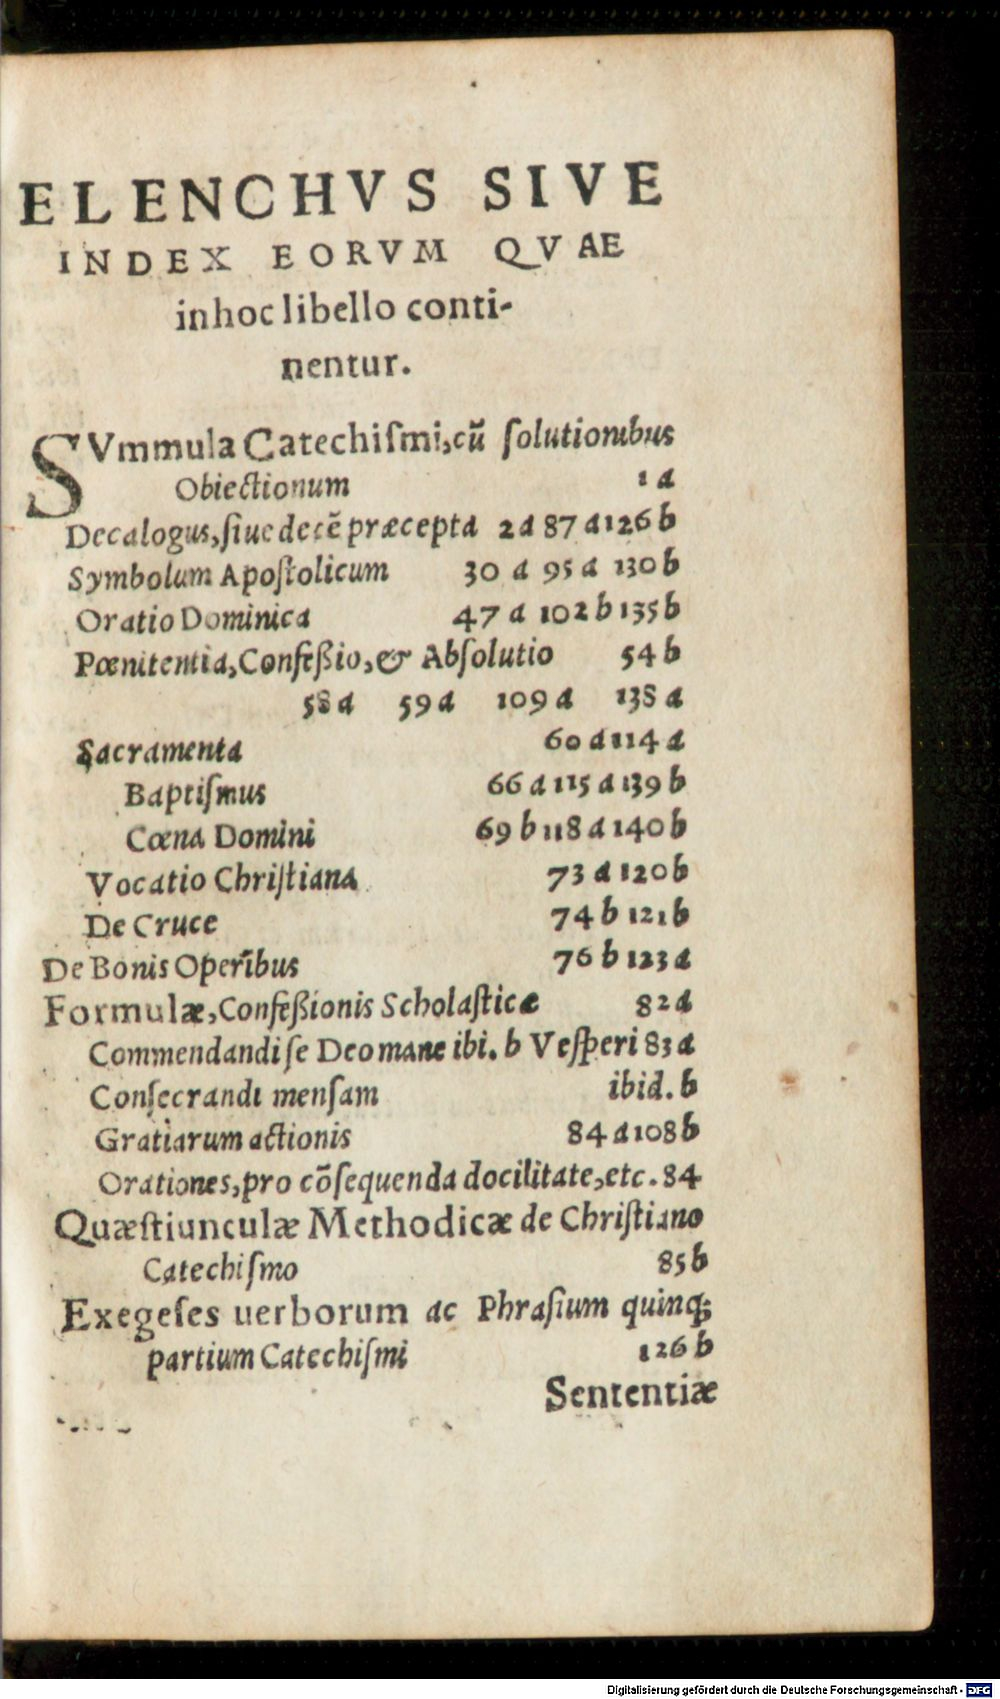 ELENCHVS SIVE
INDEX EORVM QVAE
in hoc libello conti-
nentur.
SVmmula Catechiſmi, cū ſolutionibus
Obiectionum 1 a
Decalogus, ſiue decē præcepta 2 a 87 a 126 b
Symbolum Apoſtolicum 30 a 95 a 130 b
Oratio Dominica 47 a 102 b 135 b
Pœnitentia, Confeßio, & Abſolutio 54 b
58 a 59 a 109 a 138 a
Sacramenta 60 a 114 a
Baptiſmus 66 a 115 a 139 b
Cœna Domini 69 b 118 a 140 b
Vocatio Chriſtiana 73 a 120 b
De Cruce 74 b 121 b
De Bonis Operibus 76 b 123 a
Formulæ, Confeßionis Scholaſticæ 82 a
Commendandi ſe Deo mane ibi. b Veſperi 83 a
Conſecrandi menſam ibid. b
Gratiarum actionis 84 a 108 b
Orationes, pro cōſequenda docilitate, etc. 84
Quæſtiunculæ Methodicæ de Chriſtiano
Catechiſmo 85 b
Exegeſes uerborum ac Phraſium quinq;
partium Catechiſmi 126 b
Sententiæ
Digitalisierung gefördert durch die Deutsche Forschungsgemeinschaft - DFG